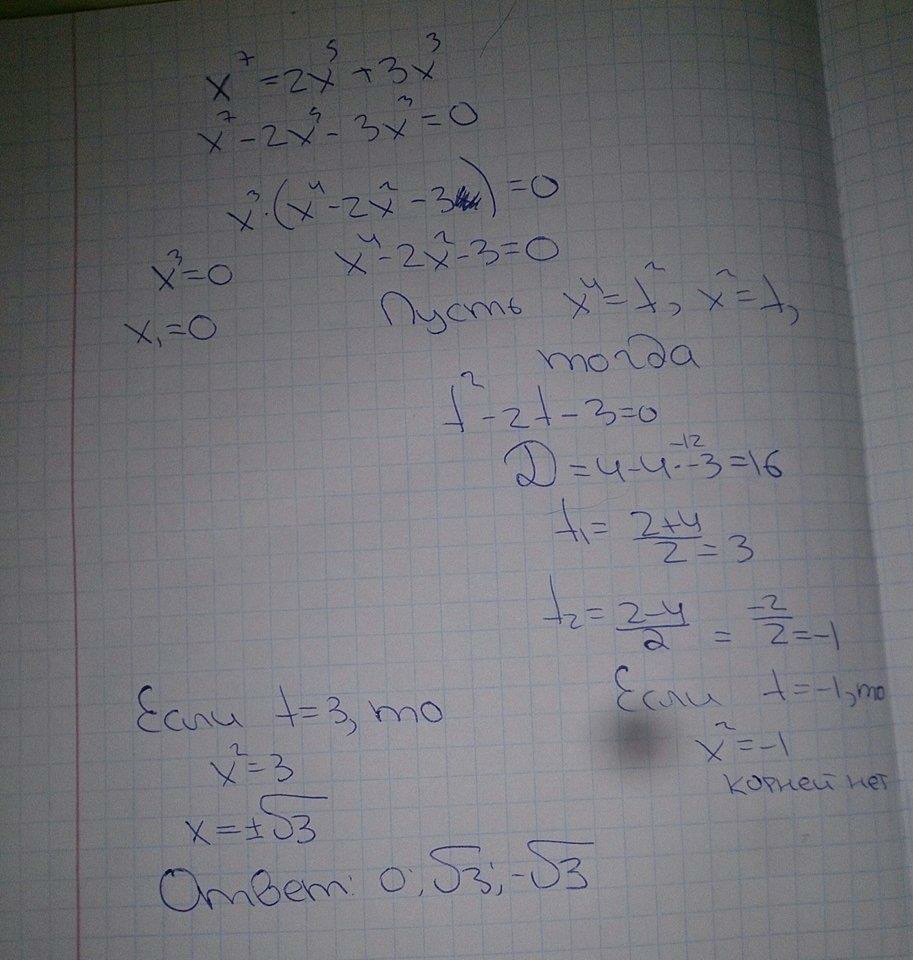 x⁷ = 2x⁵ + 3x³
x⁷ - 2x⁵ - 3x³ = 0
x³·(x⁴ - 2x² - 3) = 0
x³ = 0
x⁴ - 2x² - 3 = 0
x₁ = 0
Пусть x⁴ = t², x² = t,
тогда
t² - 2t - 3 = 0
-12
D = 4 - 4·-3 = 16
t₁ = (2+4)/2 = 3
t₂ = (2-4)/2 = -2/2 = -1
Если t = 3, то
x² = 3
x = ±√3
Если t = -1, то
x² = -1
корней нет
Ответ: 0; √3; -√3